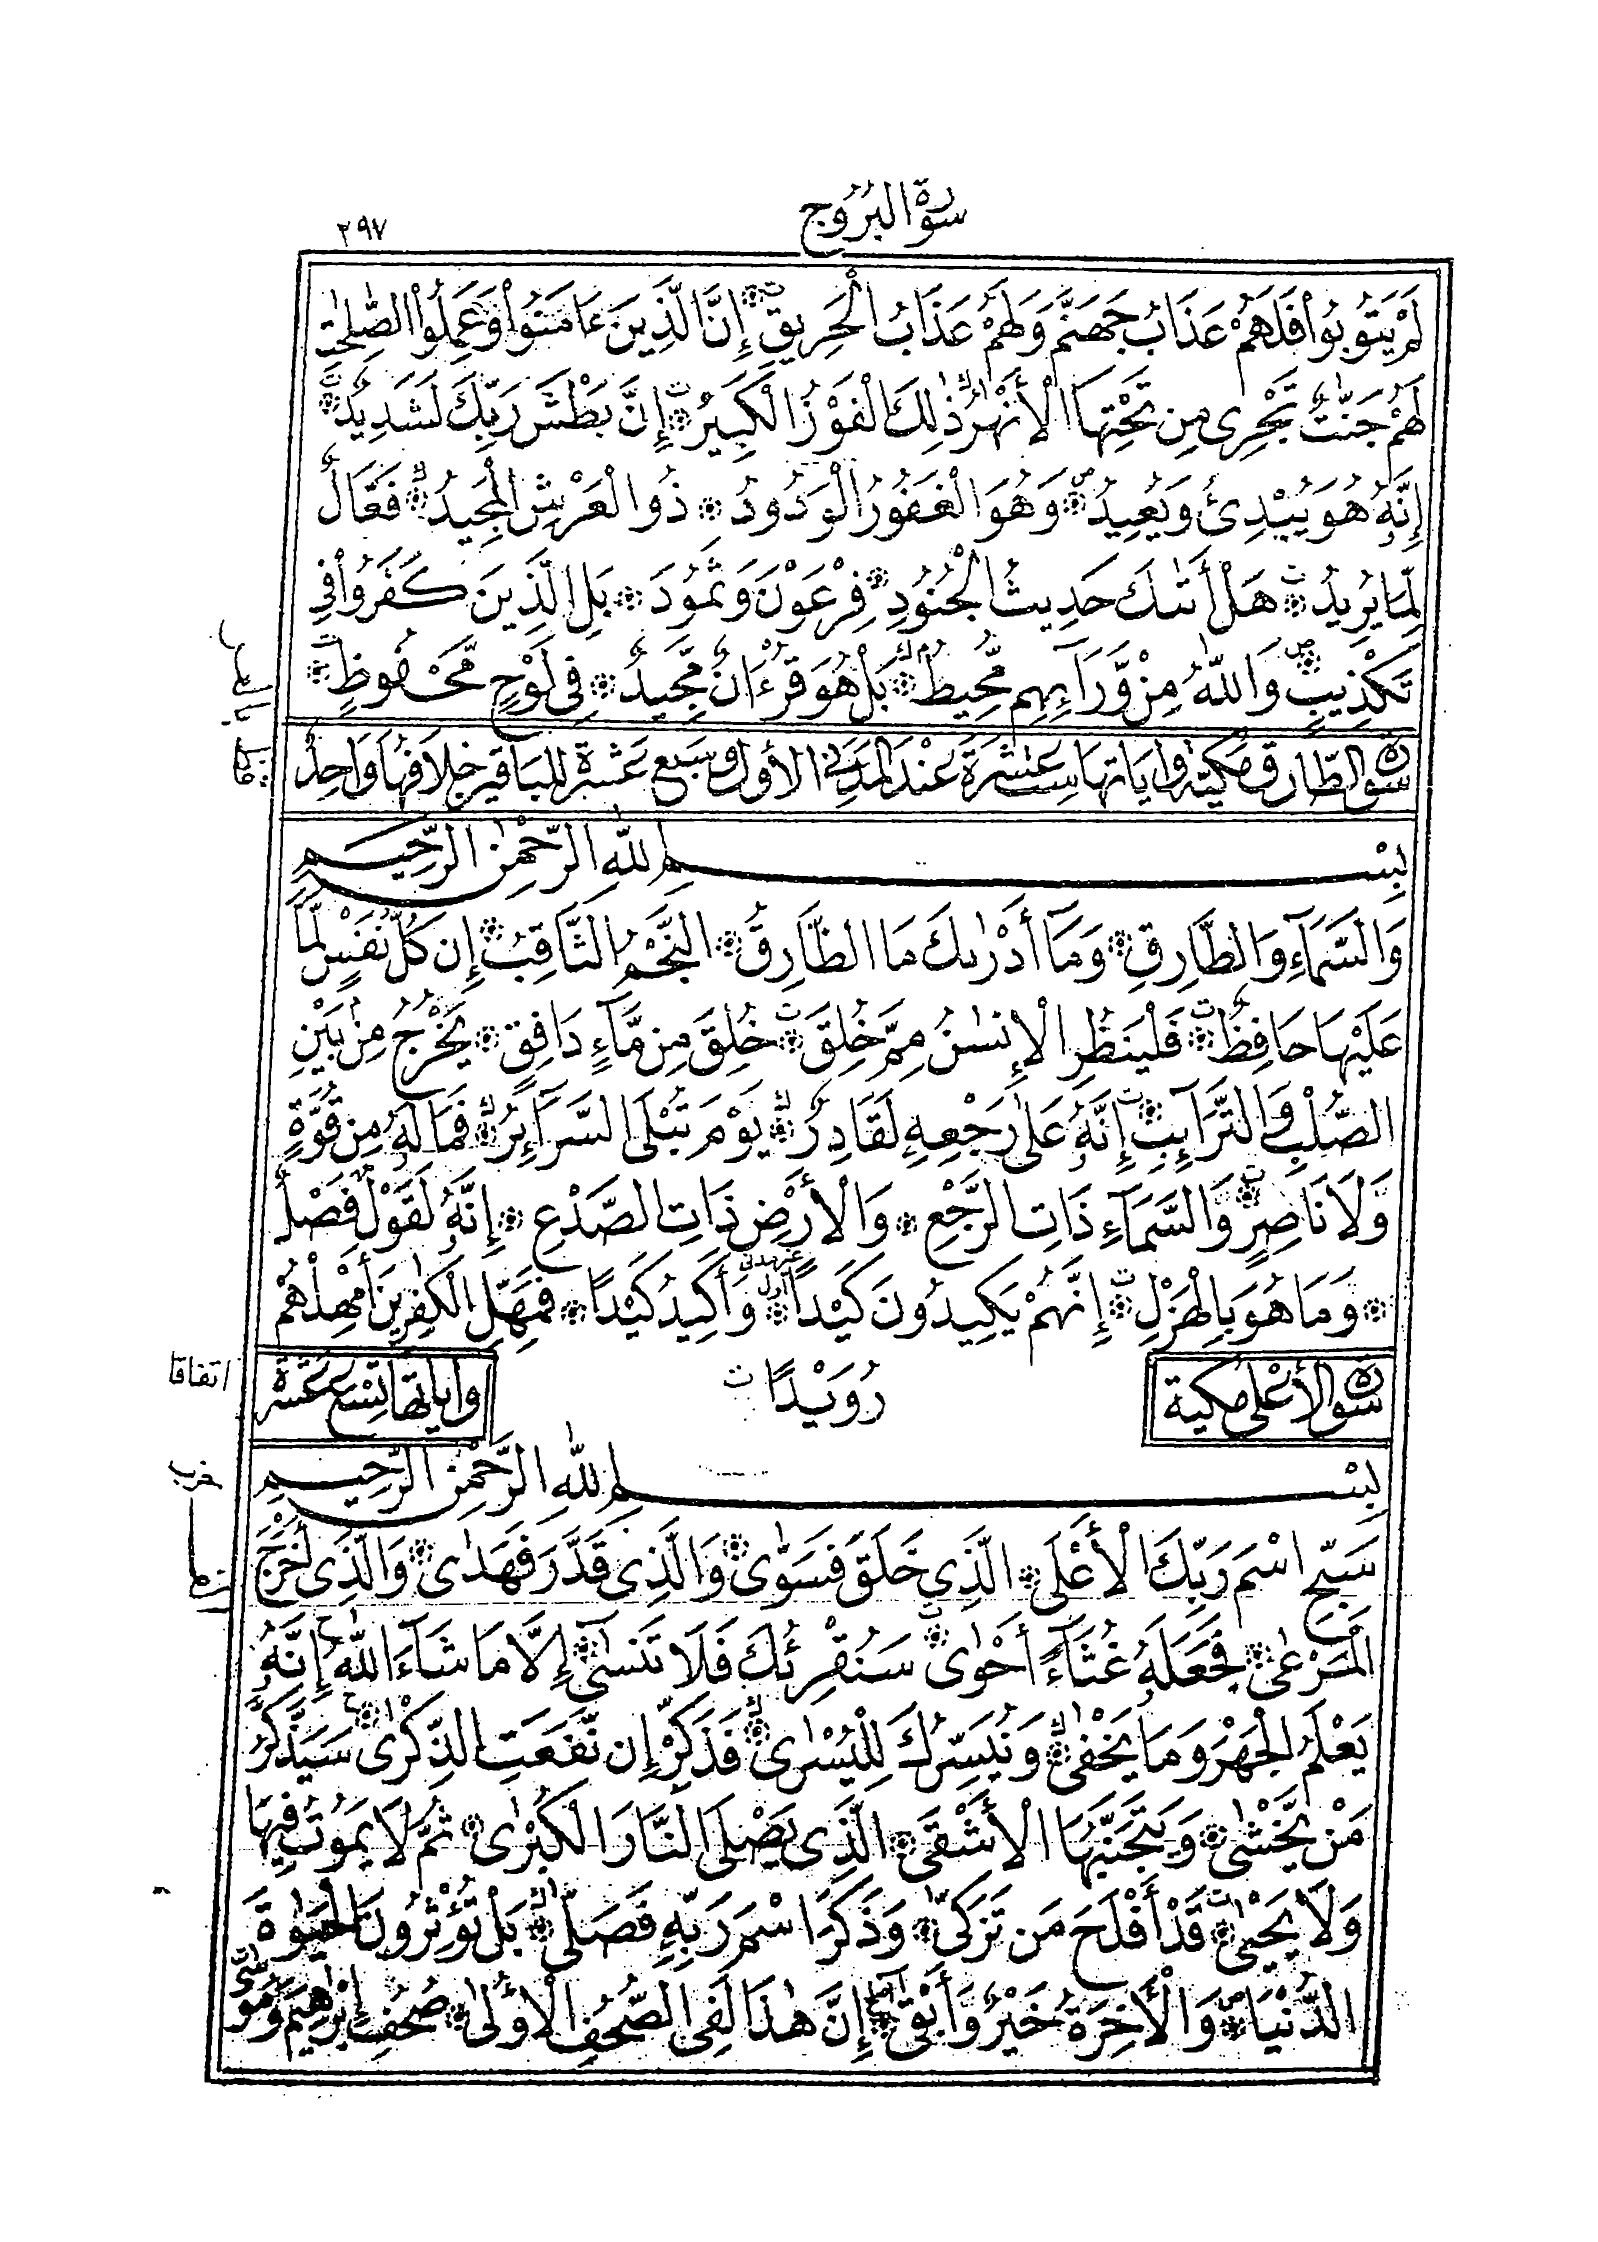 سورة البروج
٢٩٧
لَمْ يَتُوبُوا۟ فَلَهُمْ عَذَابُ جَهَنَّمَ وَلَهُمْ عَذَابُ الْحَرِيقِ ۞ إِنَّ الَّذِينَ ءَامَنُوا۟ وَعَمِلُوا۟ الصَّٰلِحَٰتِ
لَهُمْ جَنَّٰتٌ تَجْرِى مِن تَحْتِهَا الْأَنْهَٰرُ ذَٰلِكَ الْفَوْزُ الْكَبِيرُ ۞ إِنَّ بَطْشَ رَبِّكَ لَشَدِيدٌ ۞
إِنَّهُۥ هُوَ يُبْدِئُ وَيُعِيدُ ۞ وَهُوَ الْغَفُورُ الْوَدُودُ ۞ ذُو الْعَرْشِ الْمَجِيدُ ۞ فَعَّالٌ
لِّمَا يُرِيدُ ۞ هَلْ أَتَىٰكَ حَدِيثُ الْجُنُودِ ۞ فِرْعَوْنَ وَثَمُودَ ۞ بَلِ الَّذِينَ كَفَرُوا۟ فِى
تَكْذِيبٍ ۞ وَاللَّهُ مِن وَّرَآئِهِم مُّحِيطٌ ۞ بَلْ هُوَ قُرْءَانٌ مَّجِيدٌ ۞ فِى لَوْحٍ مَّحْفُوظٍ ۞
سورة الطارق مكية واياتها ست عشرة عند المدني الأول وسبع عشرة للباقين خلافها واحد
بِسْمِ اللَّهِ الرَّحْمَٰنِ الرَّحِيمِ
وَالسَّمَآءِ وَالطَّارِقِ ۞ وَمَآ أَدْرَىٰكَ مَا الطَّارِقُ ۞ النَّجْمُ الثَّاقِبُ ۞ إِن كُلُّ نَفْسٍ لَّمَّا
عَلَيْهَا حَافِظٌ ۞ فَلْيَنظُرِ الْإِنسَٰنُ مِمَّ خُلِقَ ۞ خُلِقَ مِن مَّآءٍ دَافِقٍ ۞ يَخْرُجُ مِنۢ بَيْنِ
الصُّلْبِ وَالتَّرَآئِبِ ۞ إِنَّهُۥ عَلَىٰ رَجْعِهِۦ لَقَادِرٌ ۞ يَوْمَ تُبْلَى السَّرَآئِرُ ۞ فَمَا لَهُۥ مِن قُوَّةٍ
وَلَا نَاصِرٍ ۞ وَالسَّمَآءِ ذَاتِ الرَّجْعِ ۞ وَالْأَرْضِ ذَاتِ الصَّدْعِ ۞ إِنَّهُۥ لَقَوْلٌ فَصْلٌ
۞ وَمَا هُوَ بِالْهَزْلِ ۞ إِنَّهُمْ يَكِيدُونَ كَيْدًا ۞ وَأَكِيدُ كَيْدًا ۞ فَمَهِّلِ الْكَٰفِرِينَ أَمْهِلْهُمْ
رُوَيْدًا
سورة الأعلى مكية
واياتها تسع عشرة
اتفاقا
بِسْمِ اللَّهِ الرَّحْمَٰنِ الرَّحِيمِ
حزب
سَبِّحِ اسْمَ رَبِّكَ الْأَعْلَى ۞ الَّذِى خَلَقَ فَسَوَّىٰ ۞ وَالَّذِى قَدَّرَ فَهَدَىٰ ۞ وَالَّذِى أَخْرَجَ
الْمَرْعَىٰ ۞ فَجَعَلَهُۥ غُثَآءً أَحْوَىٰ ۞ سَنُقْرِئُكَ فَلَا تَنسَىٰٓ ۞ إِلَّا مَا شَآءَ اللَّهُ إِنَّهُۥ
يَعْلَمُ الْجَهْرَ وَمَا يَخْفَىٰ ۞ وَنُيَسِّرُكَ لِلْيُسْرَىٰ ۞ فَذَكِّرْ إِن نَّفَعَتِ الذِّكْرَىٰ ۞ سَيَذَّكَّرُ
مَن يَخْشَىٰ ۞ وَيَتَجَنَّبُهَا الْأَشْقَى ۞ الَّذِى يَصْلَى النَّارَ الْكُبْرَىٰ ۞ ثُمَّ لَا يَمُوتُ فِيهَا
وَلَا يَحْيَىٰ ۞ قَدْ أَفْلَحَ مَن تَزَكَّىٰ ۞ وَذَكَرَ اسْمَ رَبِّهِۦ فَصَلَّىٰ ۞ بَلْ تُؤْثِرُونَ الْحَيَوٰةَ
الدُّنْيَا ۞ وَالْأَخِرَةُ خَيْرٌ وَأَبْقَىٰٓ ۞ إِنَّ هَٰذَا لَفِى الصُّحُفِ الْأُولَىٰ ۞ صُحُفِ إِبْرَٰهِيمَ وَمُوسَىٰ